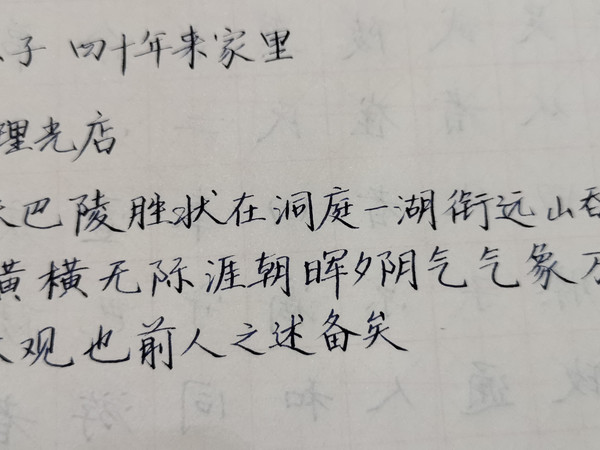 子 四十年来家里
理光店
夫巴陵胜状在洞庭一湖衔远山吞
黄横无际涯朝晖夕阴气气象万
大观也前人之述备矣